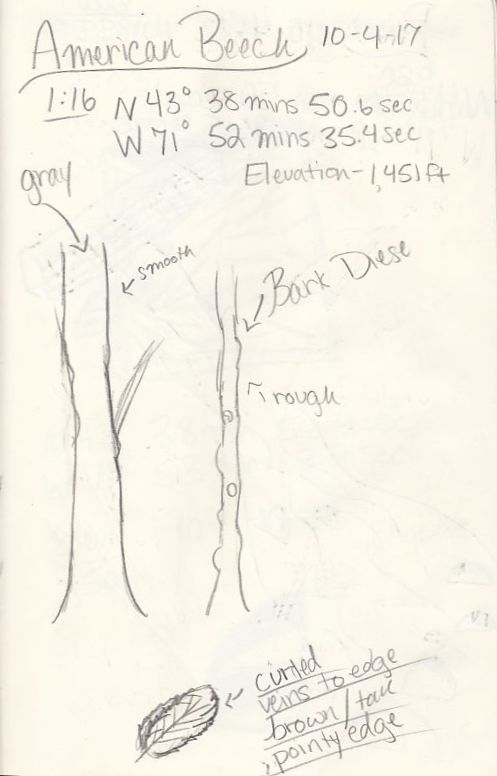 American Beech 10-4-17
1:16 N 43° 38 mins 50.6 sec
W 71° 52 mins 35.4 sec
Elevation - 1,451 ft
gray
smooth
Bark Diese
rough
curled
veins to edge
brown/tan
pointy edge